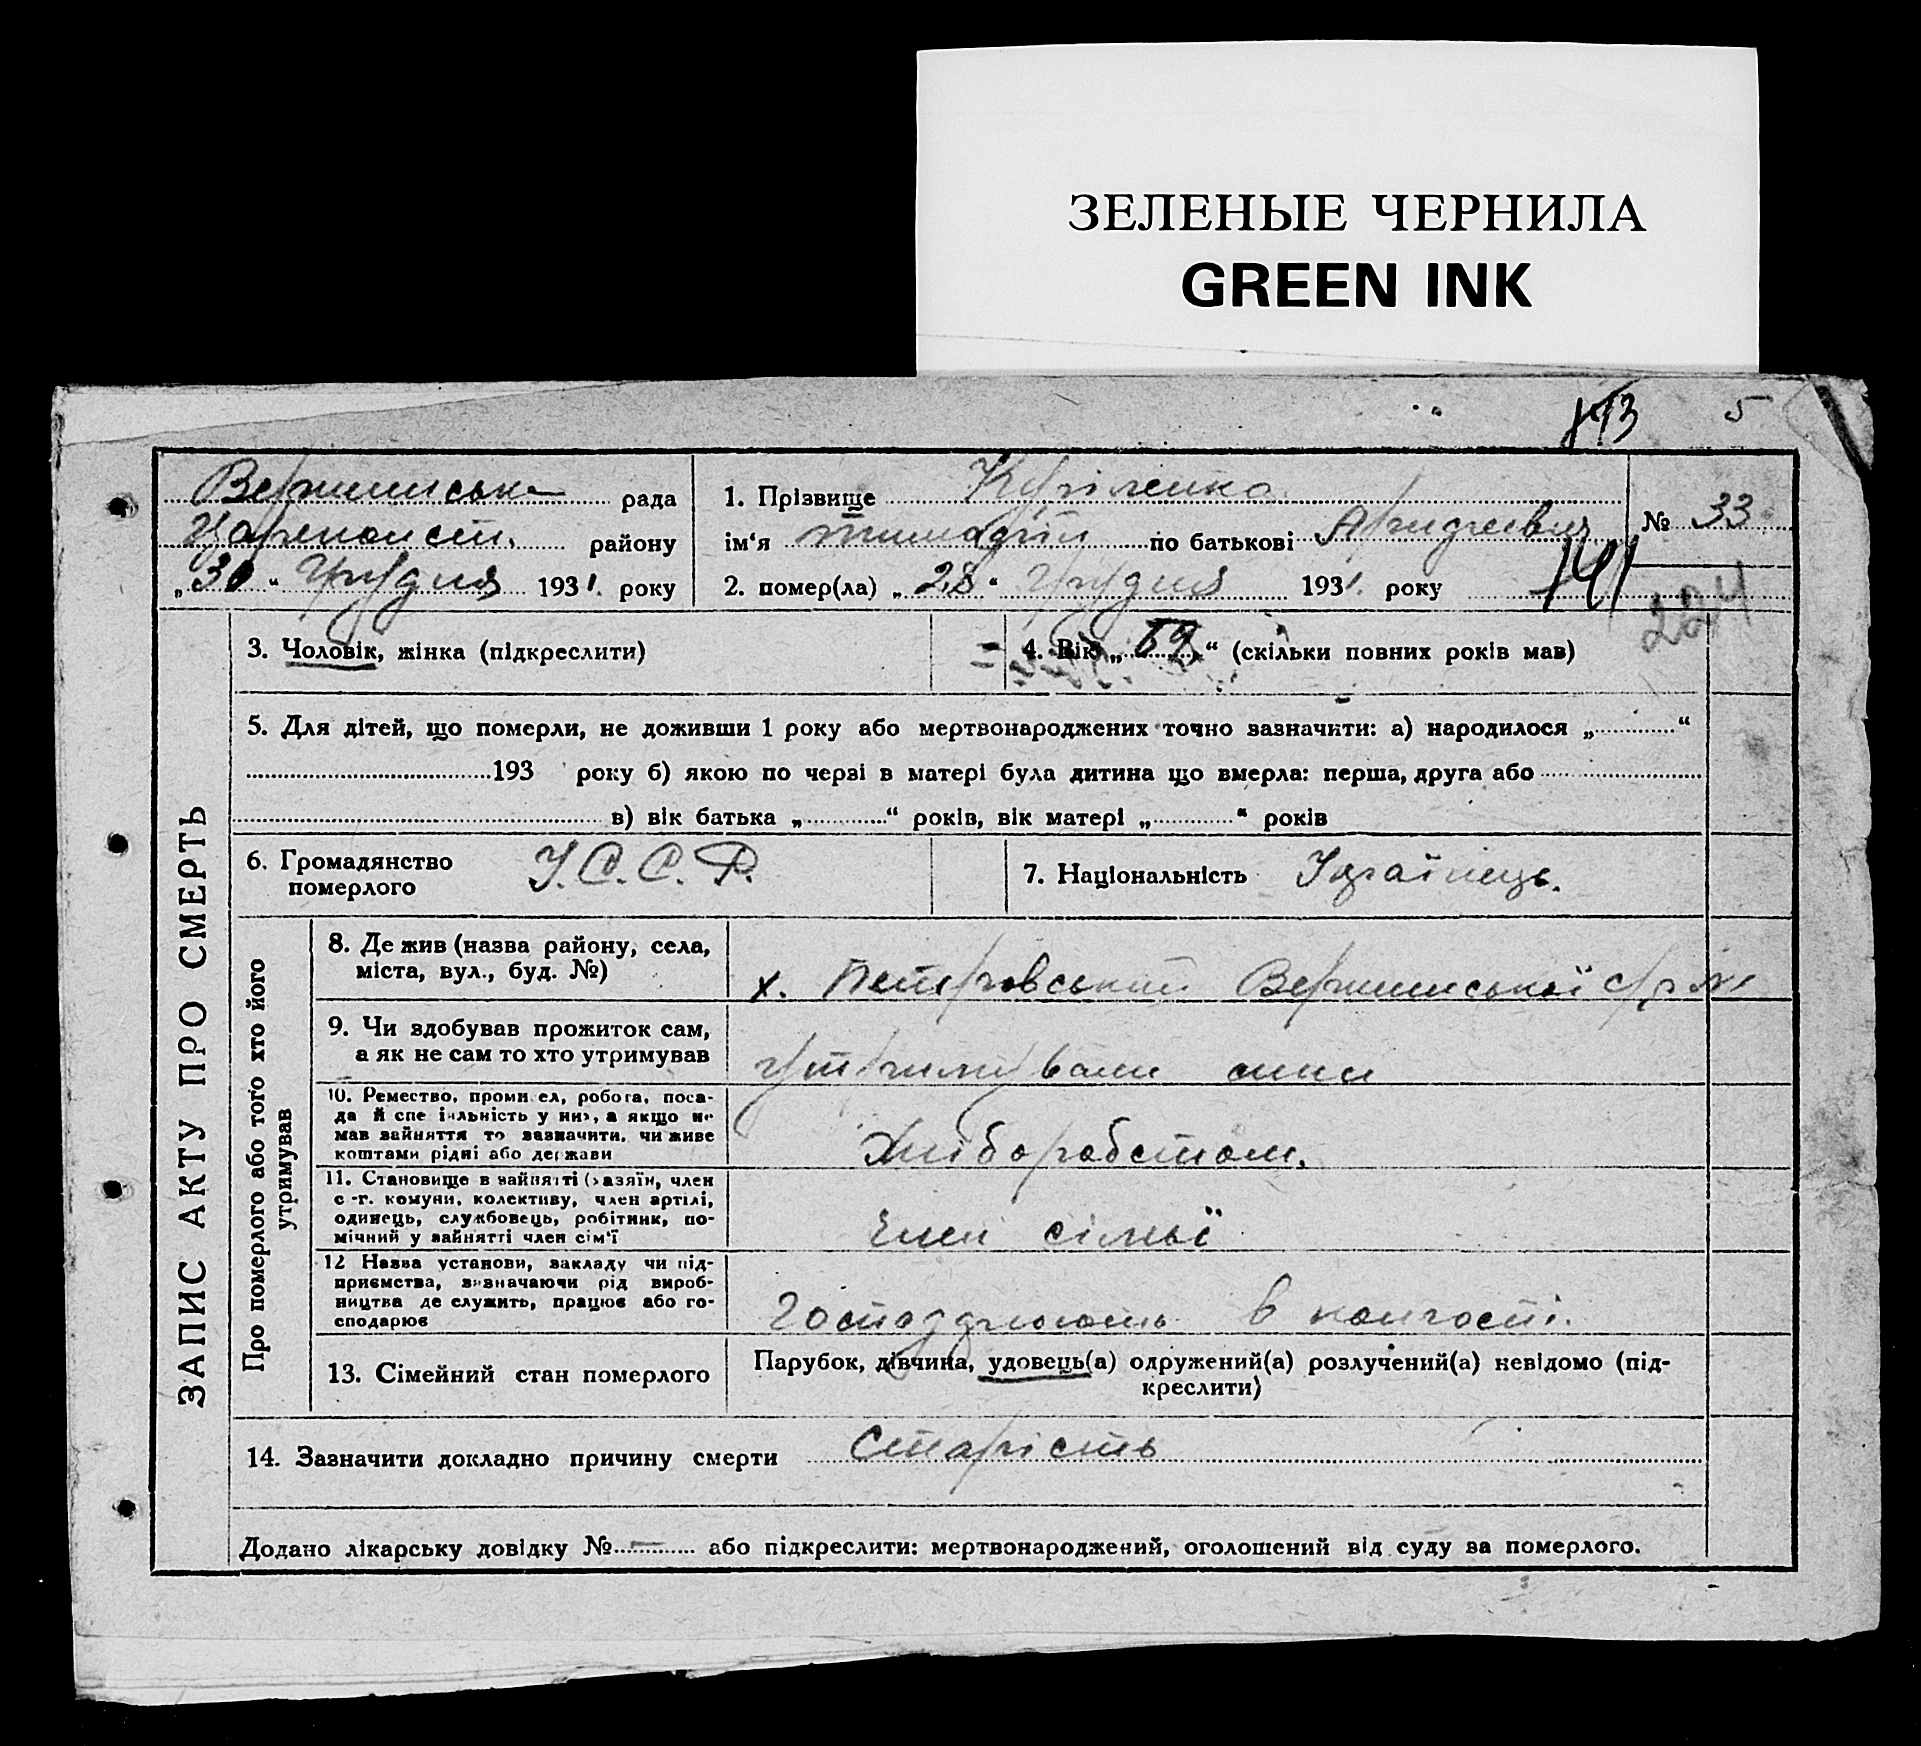 ЗЕЛЕНЫЕ ЧЕРНИЛА
GREEN INK
5
рада
району
„30“ Грудня 1931. року
1. Прізвище Куріленко
ім‘я по батькові
2. помер(ла) „28“ Грудня 1931. року 141
№ 33
224
3. Чоловік, жінка (підкреслити)
4. Вік „69“ (скільки повних років мав)
5. Для дітей, що померли, не доживши 1 року або мертвонароджених точно зазначити: а) народилося „ “
193 року б) якою по черзі в матері була дитина що вмерла: перша, друга або
в) вік батька „ “ років, вік матері „ “ років
6. Громадянство
померлого
У.С.С.Р.
7. Національність Українець.
ЗАПИС АКТУ ПРО СМЕРТЬ
Про померлого або того хто його
утримував
8. Де жив (назва району, села,
міста, вул., буд. №)
х. Петровський Вершинської с/р
9. Чи здобував прожиток сам,
а як не сам то хто утримував
утримували сини
10. Ремество, промисел, робота, поса-
да й спеціяльність у них, а якщо не
мав зайняття то зазначити, чи живе
коштами рідні або держави
Хліборобством.
11. Становище в зайнятті (хазяїн, член
с.-г. комуни, колективу, член артілі,
одинець, службовець, робітник, по-
мічний у зайнятті член сім‘ї
член сімьї
12 Назва установи, закладу чи під-
приємства, зазначаючи рід вироб-
ництва де служить, працює або го-
сподарює
в
13. Сімейний стан померлого
Парубок, дівчина, удовець(а) одружений(а) розлучений(а) невідомо (під-
креслити)
14. Зазначити докладно причину смерти Старість
Додано лікарську довідку № — або підкреслити: мертвонароджений, оголошений від суду за померлого.